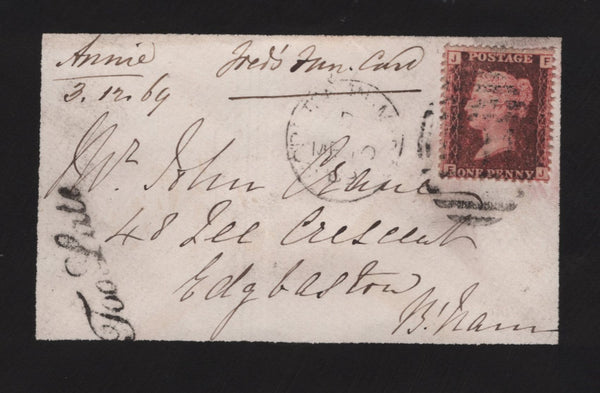 Annie Fred's Fun. Card
3.12.69
POSTAGE
J F
F J
ONE PENNY
Mr. John
48 Lee Crescent
Edgbaston
B'ham
Too Late